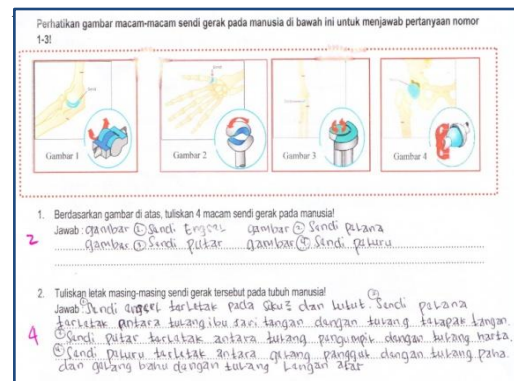 Perhatikan gambar macam-macam sendi gerak pada manusia di bawah ini untuk menjawab pertanyaan nomor
1-3!
Gambar 1
Gambar 2
Gambar 3
Gambar 4
1. Berdasarkan gambar di atas, tuliskan 4 macam sendi gerak pada manusia!
2
Jawab : gambar ① Sendi Engsel gambar ② Sendi pelana
gambar ③ Sendi putar gambar ④ Sendi peluru
2. Tuliskan letak masing-masing sendi gerak tersebut pada tubuh manusia!
Jawab : ① Sendi engsel terletak pada siku² dan lutut ② Sendi pelana
terletak antara tulang ibu jari tangan dengan tulang telapak tangan.
4
③ Sendi putar terletak antara tulang pengumpil dengan tulang hasta.
④ Sendi peluru terletak antara gelang panggul dengan tulang paha
dan gelang bahu dengan tulang lengan atas